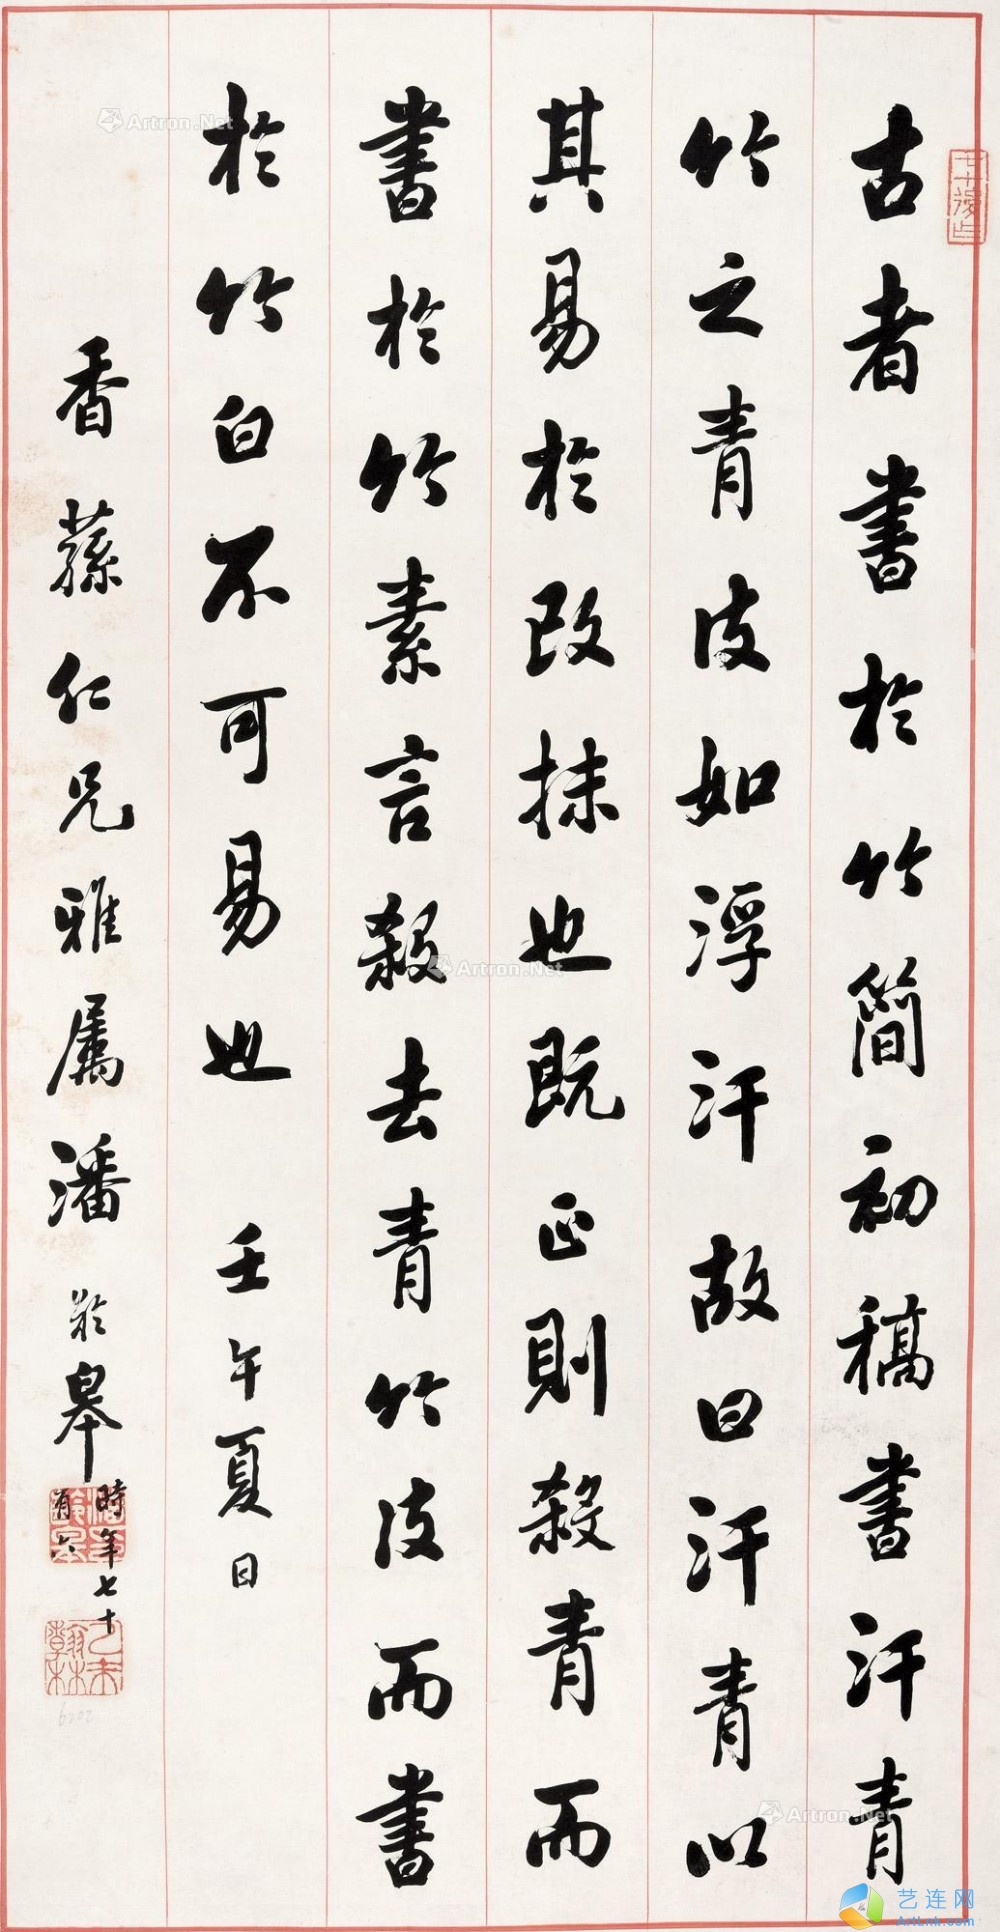 古者書於竹簡初稿書汗青
竹之青皮如浮汗故曰汗青以
其易於改抹也既正則殺青而
書於竹素言殺去青竹皮而書
於竹白不可易也 壬午夏日
香蓀仁兄雅屬潘齡皋
時年七十
有六
乙未
翰林
Artron.Net
Artron.Net
Artron.Net
艺连网
ArtLnk.com